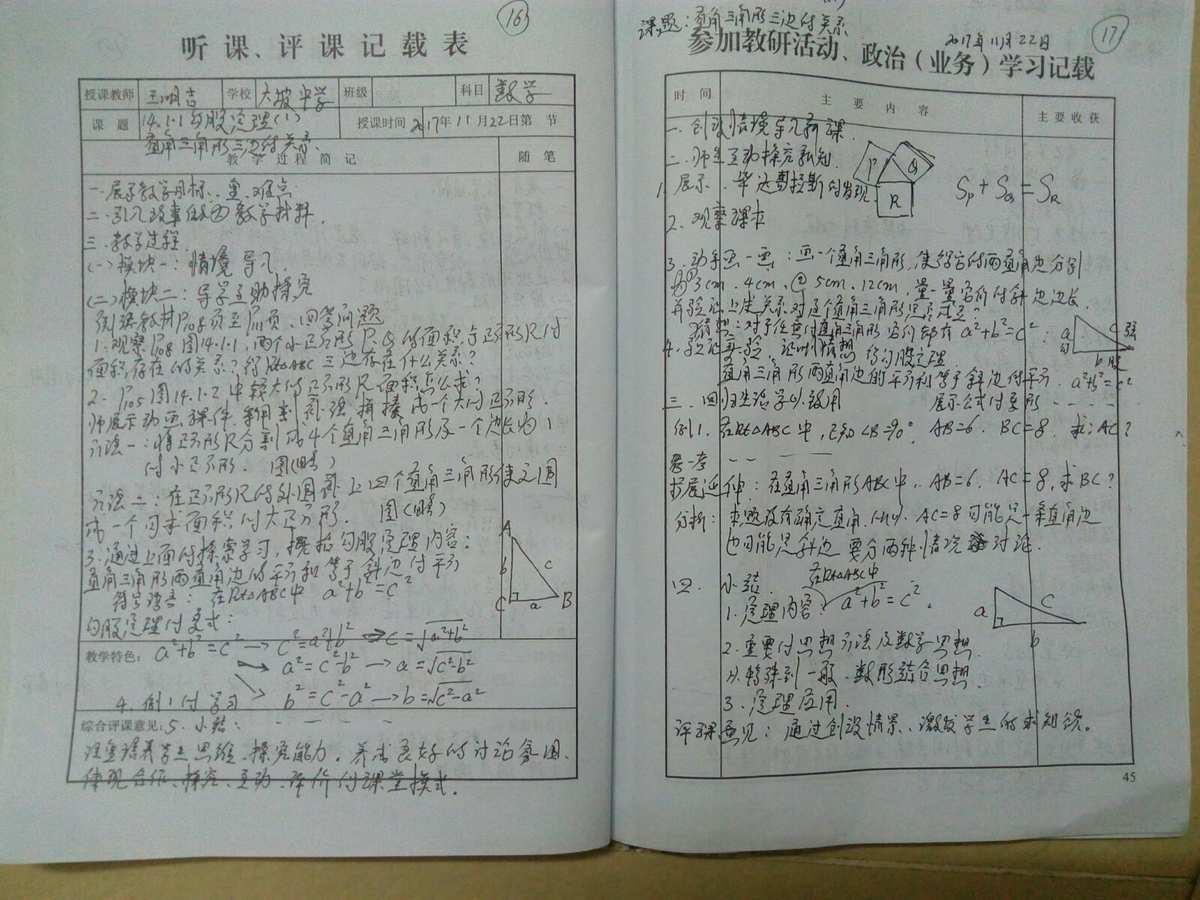 16
听课、评课记载表
授课教师 王明吉 学校 大坡中学 班级 科目 数学
课题 14.1.1勾股定理(1)
直角三角形三边的关系
授课时间 2017年11月22日第 节
教学过程简记 随笔
一.展示教学目标、重、难点
二.引入
教学材料.
三.教学过程
(一)模块一:情境导入
(二)模块二:导学互助探究
阅读教材P108页至P111页,回答问题
1.观察P108图14.1.1,两个小正方形P、Q的面积与正方形R的
面积存在的关系?得Rt△ABC三边存在什么关系?
2. 图14.1-2中较大的正方形R面积怎么求?
师展示动画课件,利用割、补、强拼接成一个大的正方形.
方法一:将正方形R分割成4个直角三角形及一个边长为1
的小正方形. 图(略)
方法二:在正方形R的外围补上四个直角三角形使之围
成一个可求面积的大正方形. 图(略)
3.通过上面的探索学习,概括勾股定理内容:
直角三角形两直角边的平方和等于斜边的平方
符号语言: 在Rt△ABC中 a²+b²=c²
A
b c
C a B
勾股定理的变式:
a²+b²=c²→c²=a²+b²→c=√a²+b²
教学特色:
a²=c²-b²→a=√c²-b²
b²=c²-a²→b=√c²-a²
4.例1的学习
综合评课意见:5.小结:
注重培养学生思维、探究能力.养成良好的讨论氛围.
体现合作、探究、互动、评价的课堂模式.
17
课题:直角三角形三边的关系
2017年11月22日
参加教研活动、政治(业务)学习记载
时间 主要内容 主要收获
一.创设情境导入新课.
二.师生互动探究新知.
1.展示.毕达哥拉斯的发现
P Q R
Sp+SQ=SR
2.观察课本
3.动手画一画:画一个直角三角形,使它的两直角边分别
为①3cm、4cm,②5cm、12cm,量一量它们的斜边边长.
并验证上述关系对这个直角三角形是否成立?
猜想:对于任意的直角三角形它们都有a²+b²=c²
a c b 股
4.验证实验,证明猜想 得勾股定理
直角三角形两直角边的平方和等于斜边的平方. a²+b²=c²
三.回归生活学以致用 展示公式的变形
例1.在Rt△ABC中,已知∠B=90° AB=6. BC=8. 求:AC?
想一考
拓展延伸:在直角三角形ABC中. AB=6. AC=8,求BC?
分析:本题没有确定直角. AC=8可能是一条直角边
也可能是斜边 要分两种情况讨论.
四. 小结
在Rt△ABC中
1.定理内容: a²+b²=c².
a c b
2.重要的思想方法及数学思想
从特殊到一般、数形结合思想.
3.定理应用.
评课意见:通过创设情景、激发学生的求知欲。
45